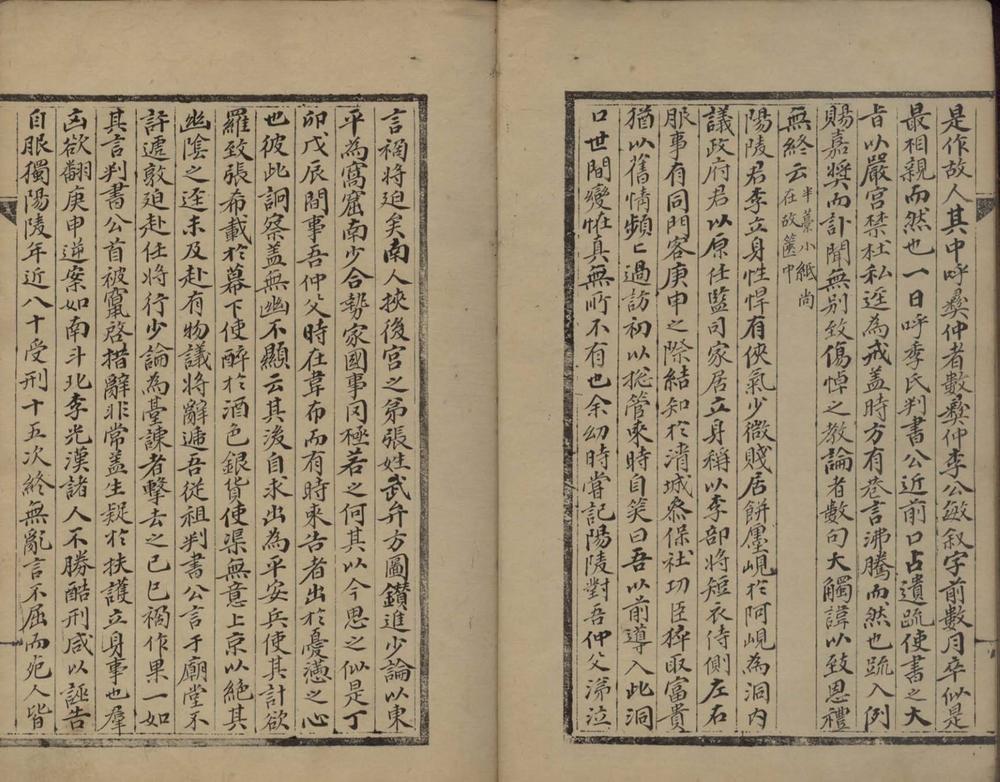 是作故人其中呼彜仲者數彜仲李公敏叙字前數月卒似是
最相親而然也一日呼季氏判書公近前口占遺疏使書之大
旨以嚴宮禁杜私逕為戒盖時方有巷言沸騰而然也疏入例
賜嘉奬而訃聞無別致傷悼之教論者數句大觸諱以致恩禮
無終云半藁小紙尚在故篋中
陽陵君李立身性悍有俠氣少微賤居餅墨峴於阿峴為洞內
議政府君以原任監司家居立身稱以李部將短衣侍側左右
服事有同門客庚申之際結知於清城叅保社功臣猝取富貴
猶以舊情頻〻過訪初以捴管來時自笑曰吾以前導入此洞
口世間變恠真無所不有也余幼時嘗記陽陵對吾仲父涕泣
言禍將迫矣南人挾後宮之弟張姓武弁方圖鑽進少論以東
平為窩窟南少合勢家國事罔極若之何其以今思之似是丁
卯戊辰間事吾仲父時在韋布而有時來告者出於憂懣之心
也彼此詗察盖無幽不顯云其後自求出為平安兵使其計欲
羅致張希載於幕下使醉於酒色銀貨使渠無意上京以絕其
幽陰之逕未及赴有物議將辭逓吾從祖判書公言于廟堂不
許遷敦迫赴任將行少論為臺諫者擊去之己巳禍作果一如
其言判書公首被竄啓措辭非常盖生疑於扶護立身事也羣
凶欲翻庚申逆案如南斗北李光漢諸人不勝酷刑咸以誣告
自服獨陽陵年近八十受刑十五次終無亂言不屈而死人皆